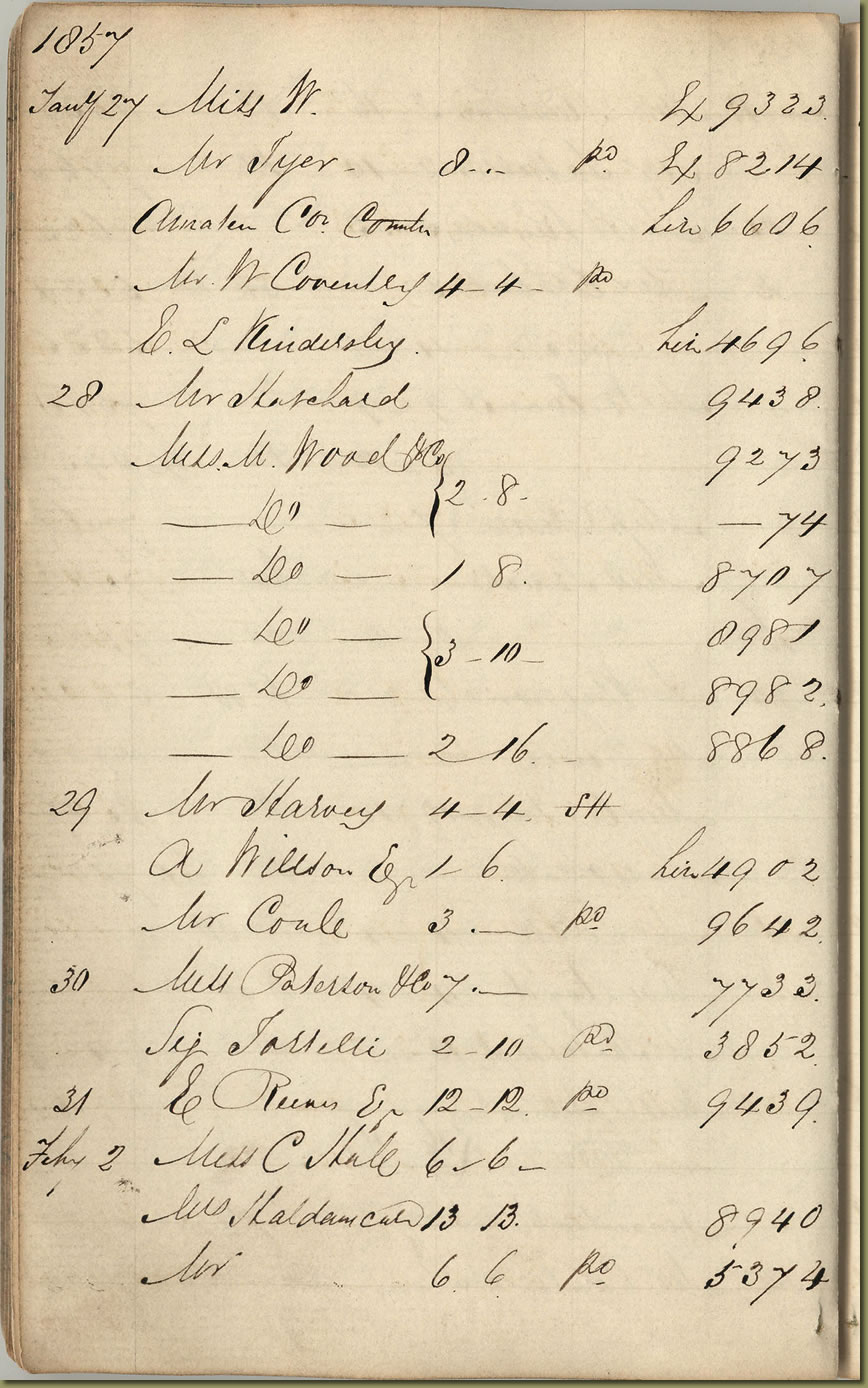 1857
Jany 27 Miss W. Ex 9323.
Mr Tyer - 8.. pd Ex 8214
Amaten Con. Lin 6606.
Mr. W Coventry 4-4- pd
E. L Kindersley. Lin 4696
28 Mr 9438.
Mess. M. Wood &Co 9273
{2.8-
— Do — — 74
— Do — 1 8. 8707
— Do — 8981
{3-10-
— Do — 8982.
— Do — 2 16. - 8868.
29 Mr Harvey 4-4. SH
A Willson Eqr 1- 6. Lin 4902
Mr Coule 3.— pd 9642.
30 Mess Paterson &Co 7.— 7733.
Sig 2-10 pd 3852.
31 E Reeves Eqr 12-12. pd 9439.
Feby 2 Mess C Hale 6-6-
13 13. 8940
Mr 6. 6. pd 5374